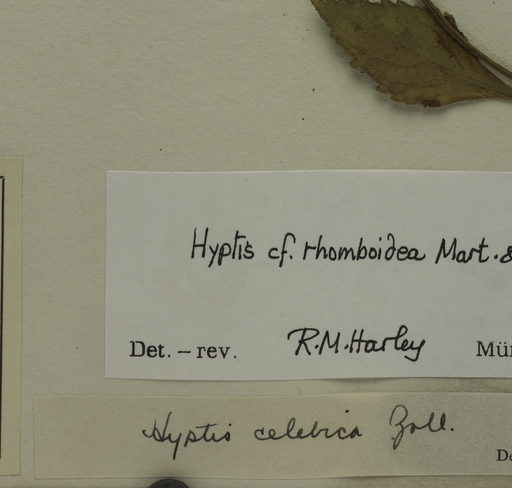 Hyptis cf. rhomboidea Mart. &
Det. – rev. R.M.Harley Mün
Hyptis celebica Zoll.
De